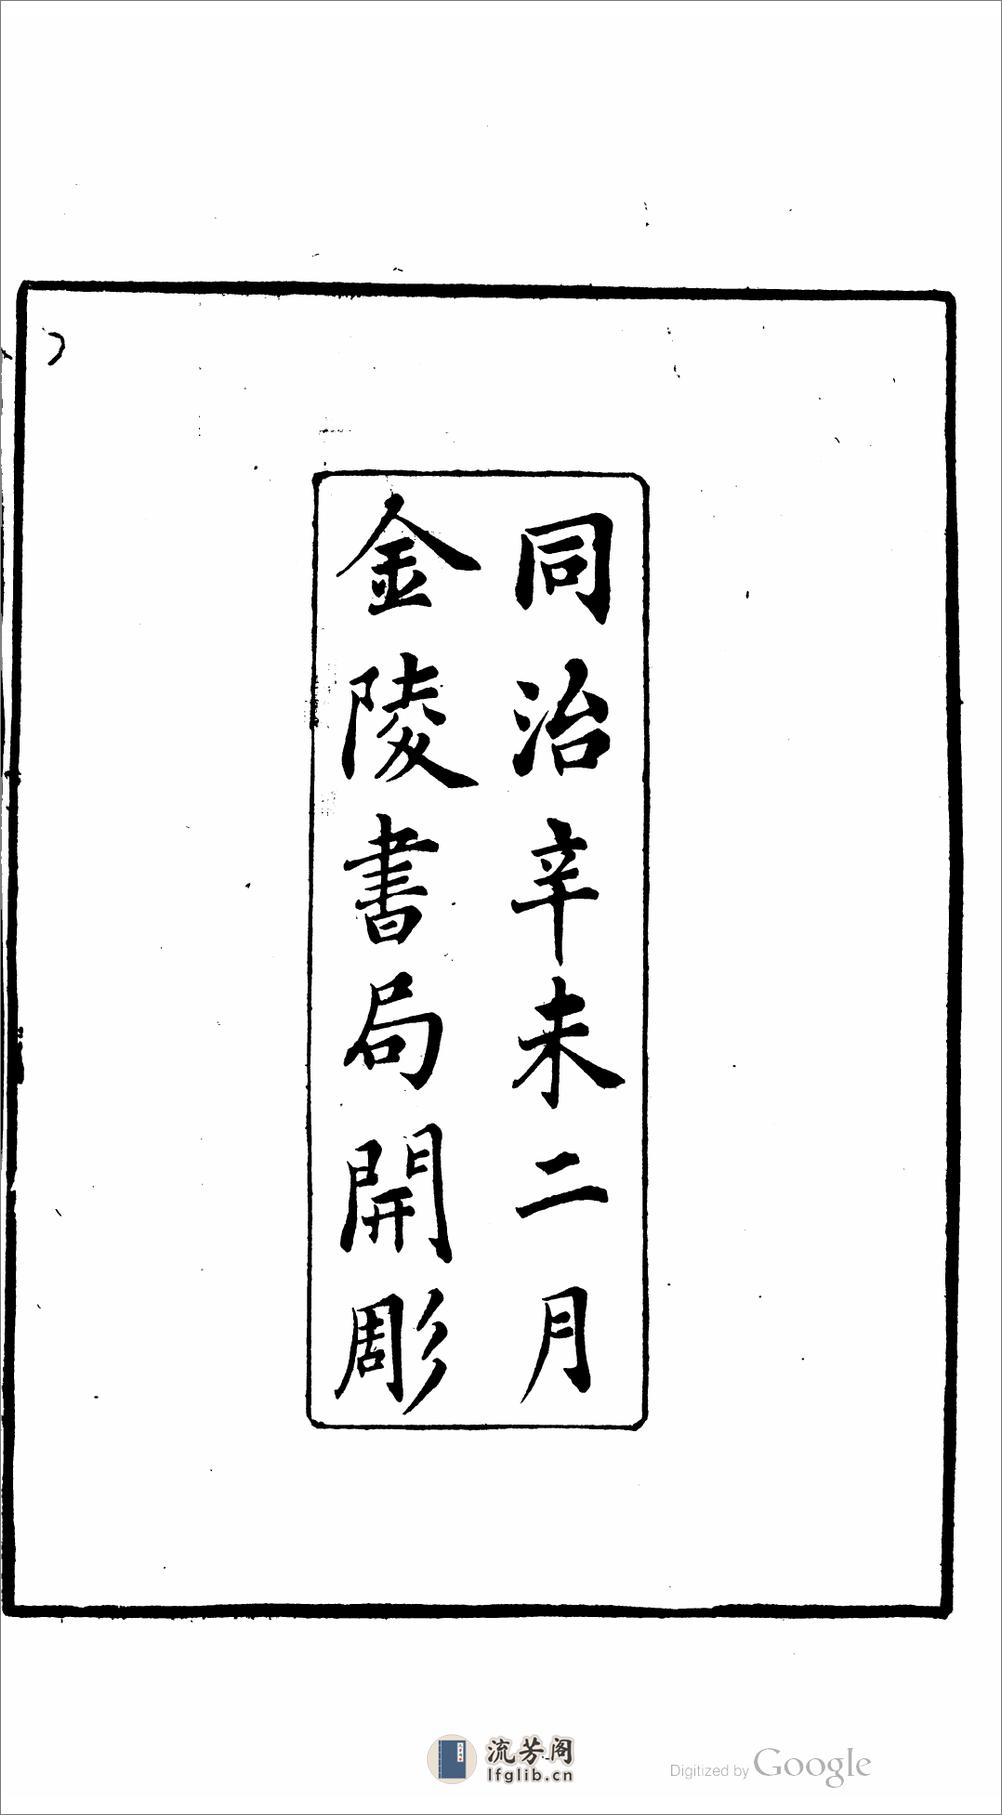 同治辛未二月
金陵書局開彫
流芳阁
lfglib.cn
Digitized by Google